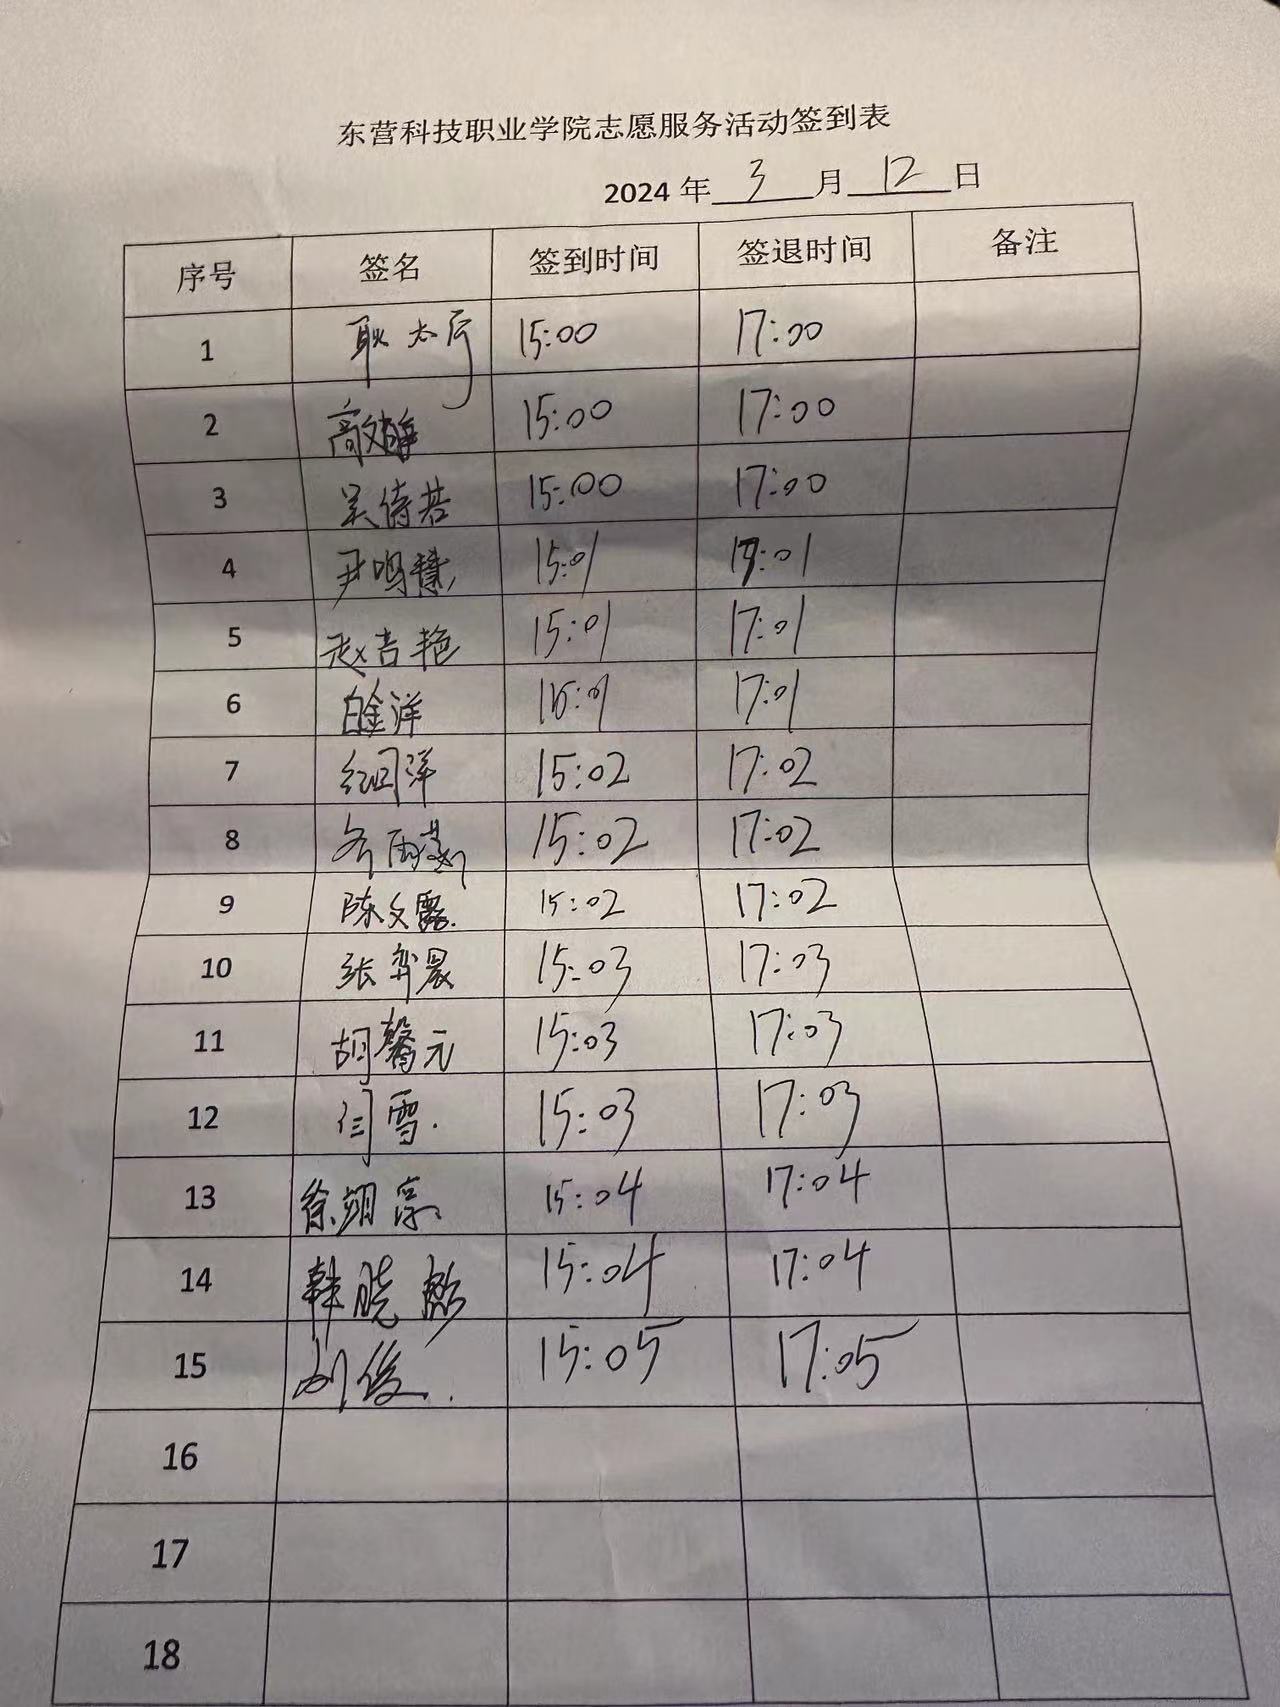 东营科技职业学院志愿服务活动签到表
2024 年 3 月 12 日
序号 签名 签到时间 签退时间 备注
1 耿 15:00 17:00
2 高文静 15:00 17:00
3 吴倩若 15:00 17:00
4 尹鸣慧 15:01 17:01
5 赵吉艳 15:01 17:01
6 白金洋 15:01 17:01
7 红园洋 15:02 17:02
8 15:02 17:02
9 陈文露 15:02 17:02
10 张羿晨 15:03 17:03
11 胡馨元 15:03 17:03
12 闫雪 15:03 17:03
13 徐翊 15:04 17:04
14 韩晓彤 15:04 17:04
15 刘俊 15:05 17:05
16
17
18